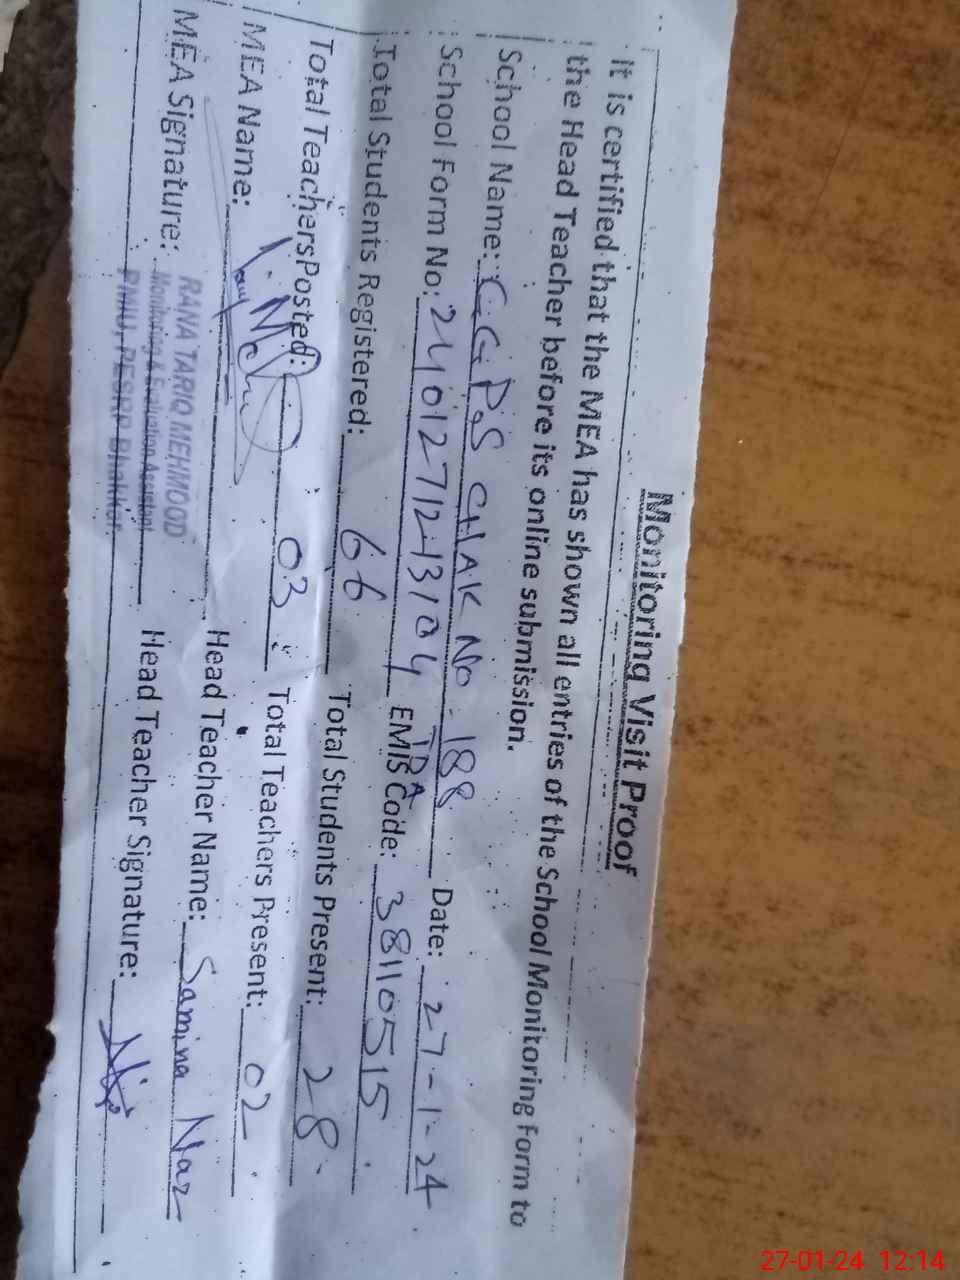 Monitoring Visit Proof
It is certified that the MEA has shown all entries of the School Monitoring Form to
the Head Teacher before its online submission.
School Name: GGPS CHAK NO. 188 TDA Date: 27-1-24
School Form No: EMIS Code: 38110515
Total Students Registered: 66 Total Students Present: 28
Total Teachers Posted: 03 Total Teachers Present: 02
MEA Name: Head Teacher Name: Samina Naz
MEA Signature: Head Teacher Signature:
RANA TARIQ MEHMOOD
Monitoring & Evaluation Assistant
PMIU, PESRP Bhakkar
27-01-24 12:14